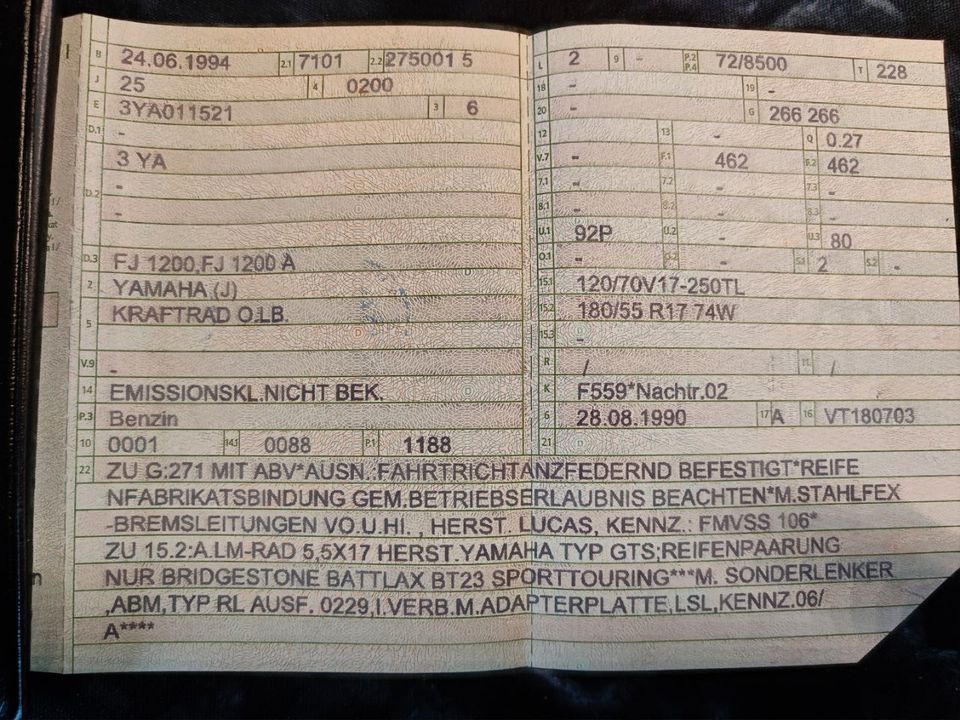 B 24.06.1994 2.1 7101 2.2 275001 5
J 25 4 0200
E 3YA011521 3 6
D.1 -
3 YA
D.2 -
-
D.3 FJ 1200,FJ 1200 A
2 YAMAHA (J)
5 KRAFTRAD O.LB.
V.9 -
14 EMISSIONSKL.NICHT BEK.
P.3 Benzin
10 0001 14.1 0088 P.1 1188
L 2 9 - P.2 P.4 72/8500 T 228
18 - 19 -
20 - G 266 266
12 13 - Q 0.27
V.7 - F.1 462 F.2 462
7.1 - 7.2 - 7.3 -
8.1 - 8.2 - 8.3 -
U.1 92P U.2 - U.3 80
O.1 - O.2 - S.1 2 S.2 -
15.1 120/70V17-250TL
15.2 180/55 R17 74W
15.3 -
R / 11 /
K F559*Nachtr.02
6 28.08.1990 17 A 16 VT180703
21
22 ZU G:271 MIT ABV*AUSN.:FAHRTRICHTANZFEDERND BEFESTIGT*REIFE
NFABRIKATSBINDUNG GEM.BETRIEBSERLAUBNIS BEACHTEN*M.STAHLFEX
-BREMSLEITUNGEN VO.U.HI. , HERST. LUCAS, KENNZ.: FMVSS 106*
ZU 15.2:A.LM-RAD 5,5X17 HERST.YAMAHA TYP GTS:REIFENPAARUNG
NUR BRIDGESTONE BATTLAX BT23 SPORTTOURING***M. SONDERLENKER
,ABM,TYP RL AUSF. 0229,I.VERB.M.ADAPTERPLATTE,LSL,KENNZ.06/
A****